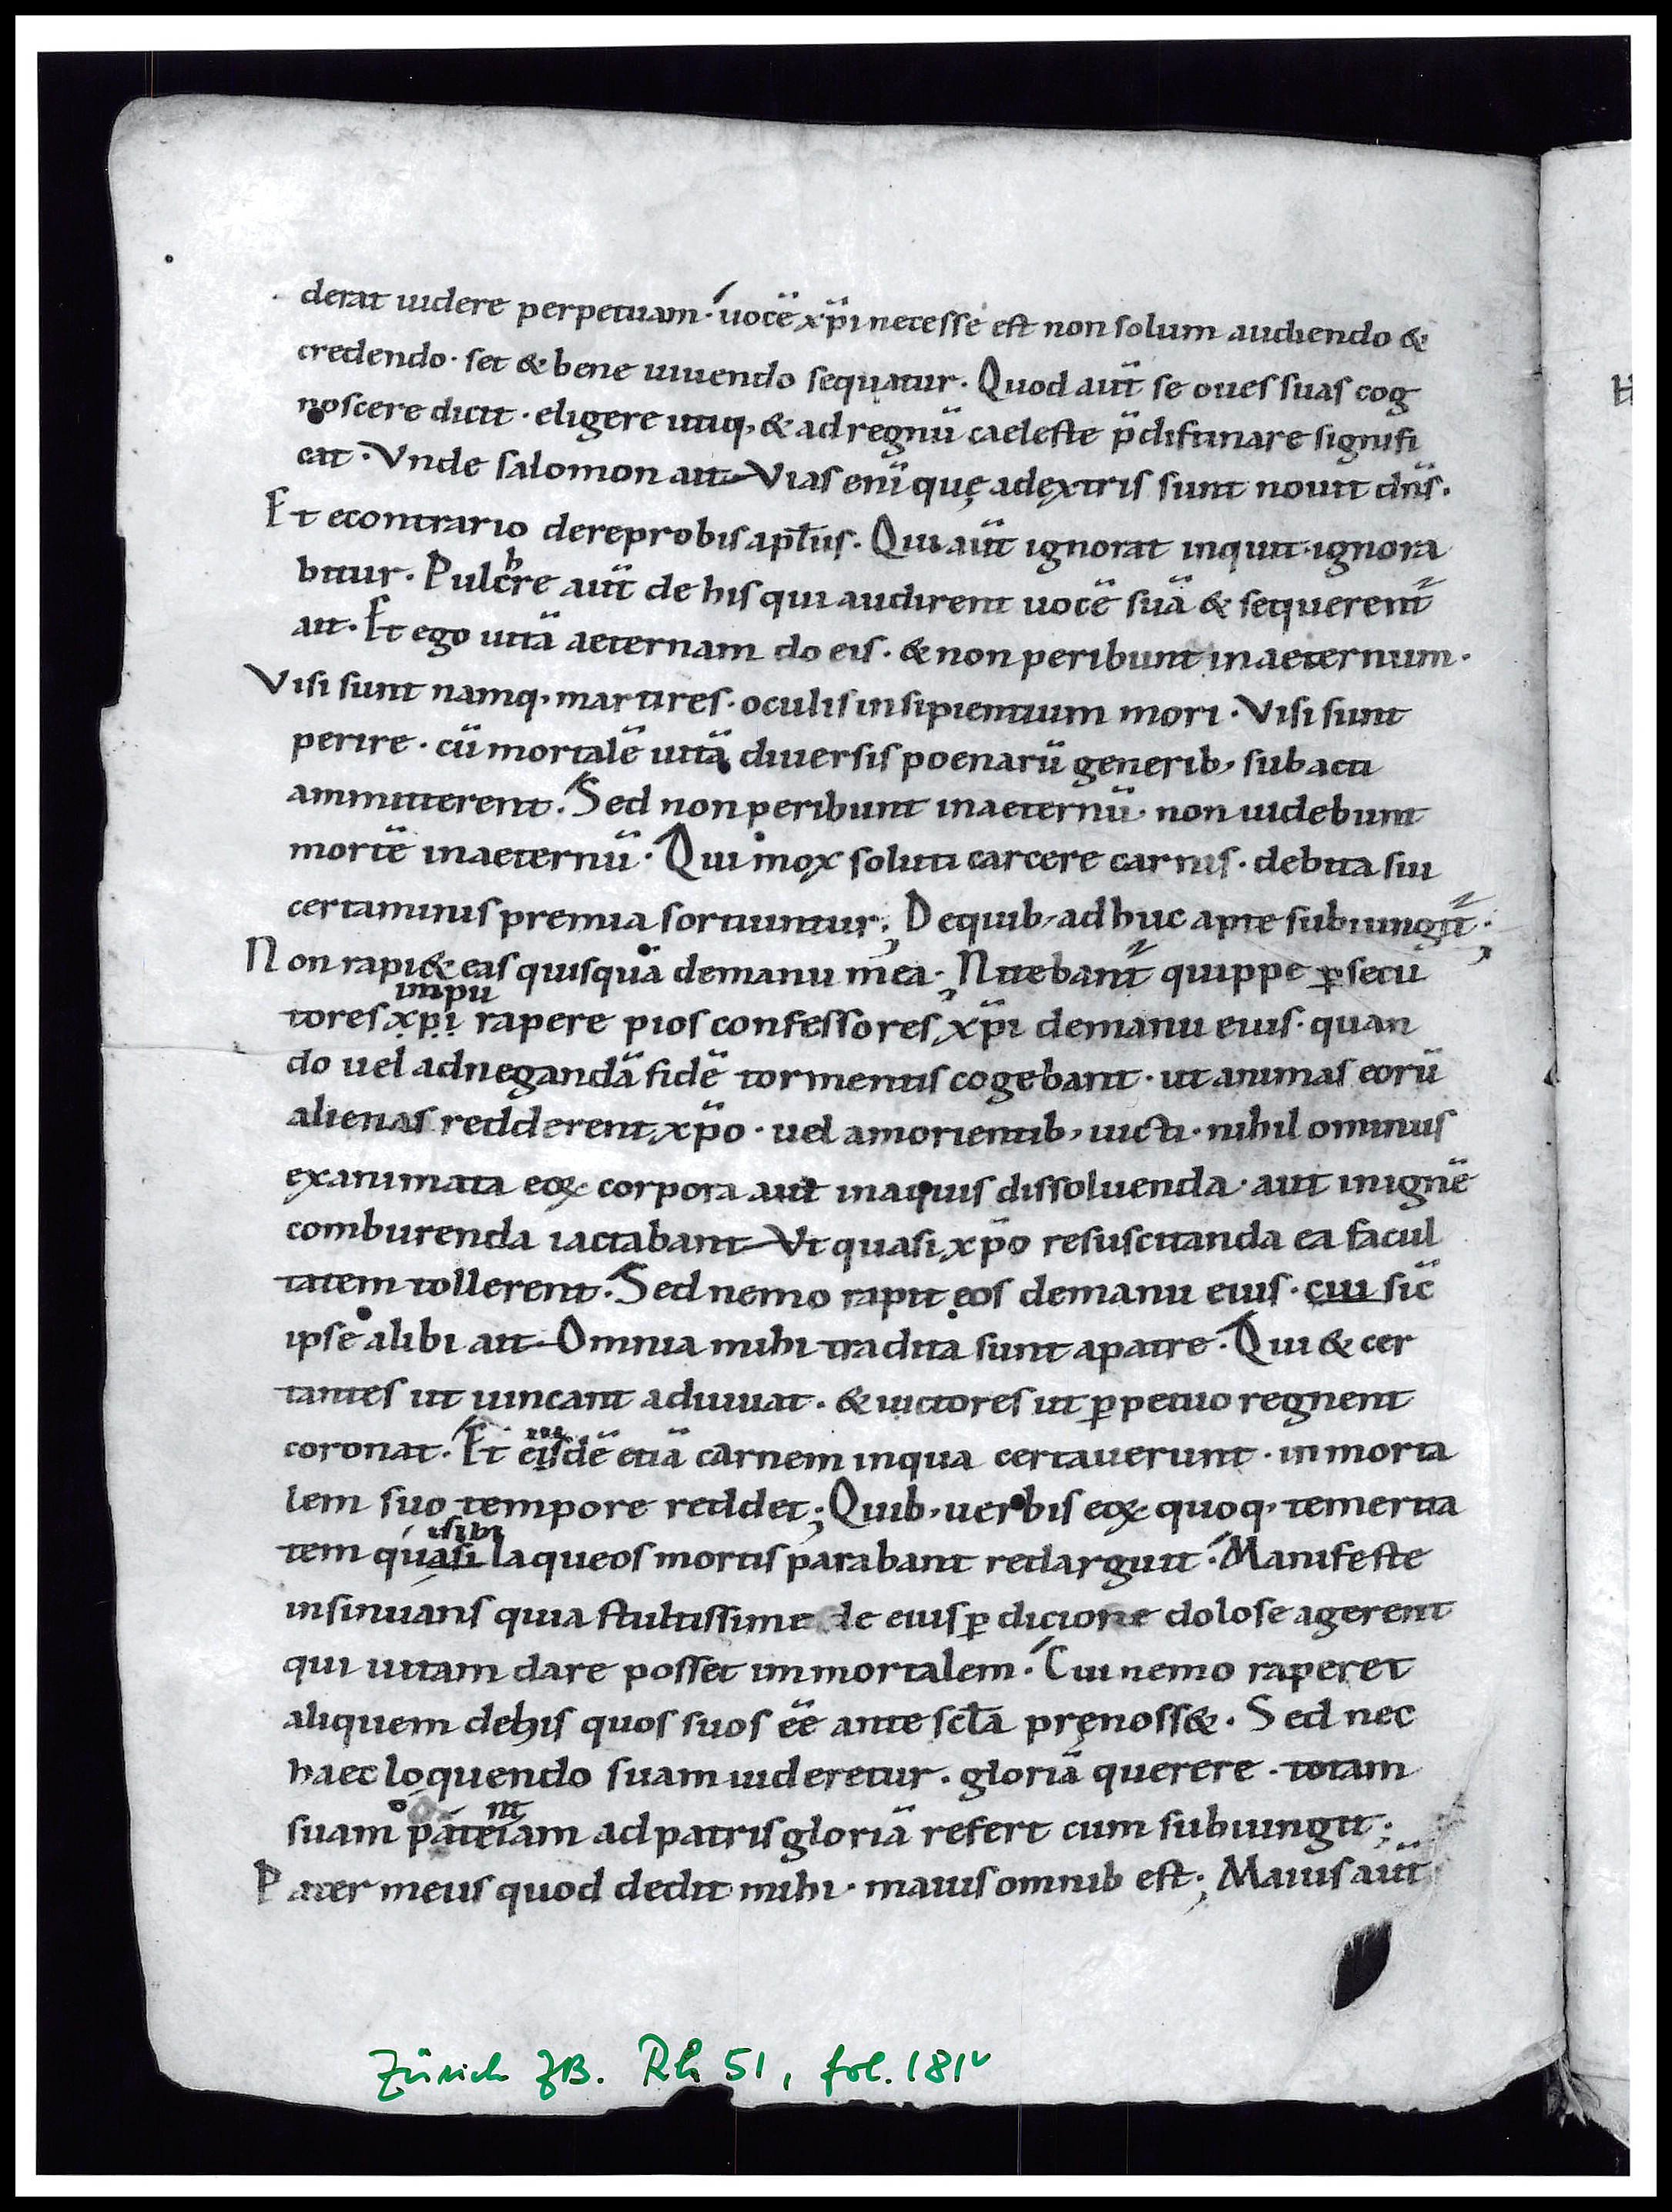 derat uidere perpetuam· uocē xp̄i necesse est non solum audiendo &
credendo· set & bene uiuendo sequatur· Quod aūt se oues suas cog
noscere dicit· eligere utiq, & ad regnū caeleste p̄distinare signifi
cat· Vnde salomon ait Vias enī quę adextris sunt nouit dn̄s·
Et econtrario dereprobis apl̄us· Qui aūt ignorat inquit· ignora
bitur· Pulchre aūt de his qui audirent uocē suā & sequerent᷑
ait· Et ego uitā aeternam do eis· & non peribunt inaeternum·
Visi sunt namq, martires· oculis insipientium mori· Visi sunt
perire· cū mortalē uitā diuersis poenarū generib, subacti
ammitterent· Sed non peribunt inaeternū· non uidebunt
mortē inaeternū· Qui mox soluti carcere carnis· debita sui
certaminis premia sortiuntur; Dequib, adhuc apte subiungit᷑;
Non rapi& eas quisquā demanu mea; Nitebant᷑ quippe ꝑsecu
impii
tores xp̣ị rapere pios confessores xp̄i demanu eius· quan
do uel adnegandā fidē tormentis cogebant· ut animas eorū
alienas redderent xp̄o· uel amorientib, uicti· nihil ominus
exanimata eoꝝ corpora aut inaquis dissoluenda· aut inignē
comburenda iactabant Vt quasi xp̄o resuscitanda ea facul
tatem tollerent· Sed nemo rapit eos demanu eius· cui sic̄
ipse alibi ait Omnia mihi tradita sunt apatre· Qui & cer
tantes ut uincant adiuuat· & uictores ut ꝑpetuo regnent
coronat· Et eisdē etiā carnem inqua certauerunt· inmorta
lem suo tempore reddet; Quib, uerbis eoꝝ quoq, temerita
isibi
tem quasi laqueos mortis parabant redarguit· Manifeste
insinuans quia stultissime de eius ꝑdicione dolose agerent
qui uitam dare posset immortalem· Cui nemo raperet
aliquem dehis quos suos ēe ante scl̄a pręnoss&· Sed nec
haec loquendo suam uideretur· gloriā querere· totam
nt
suam páteiam ad patris gloriā refert cum subiungit;
Pater meus quod dedit mihi· maius omnib est; Maius aūt
Zürich ZB. Rh 51, fol. 181v